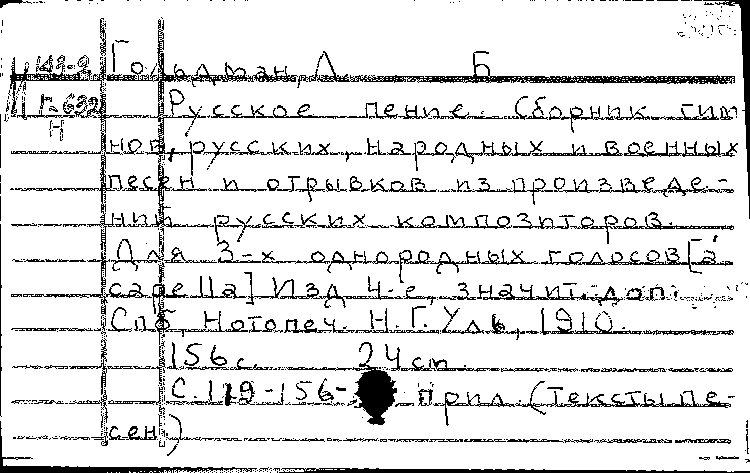 Гольдман, Л. Б
М 149-2
Г-632
Н
Русское пение. Сборник гим-
нов, русских, народных и военных
песен и отрывков из произведе-
ний русских композиторов.
Для 3-х однородных голосов [а
capella] Изд 4-е, значит. доп.
Спб, Нотопеч. Н.Г. Уль, 1910.
156 с. 24 cm.
С. 119-156- Прил. (Тексты пе-
сен.)